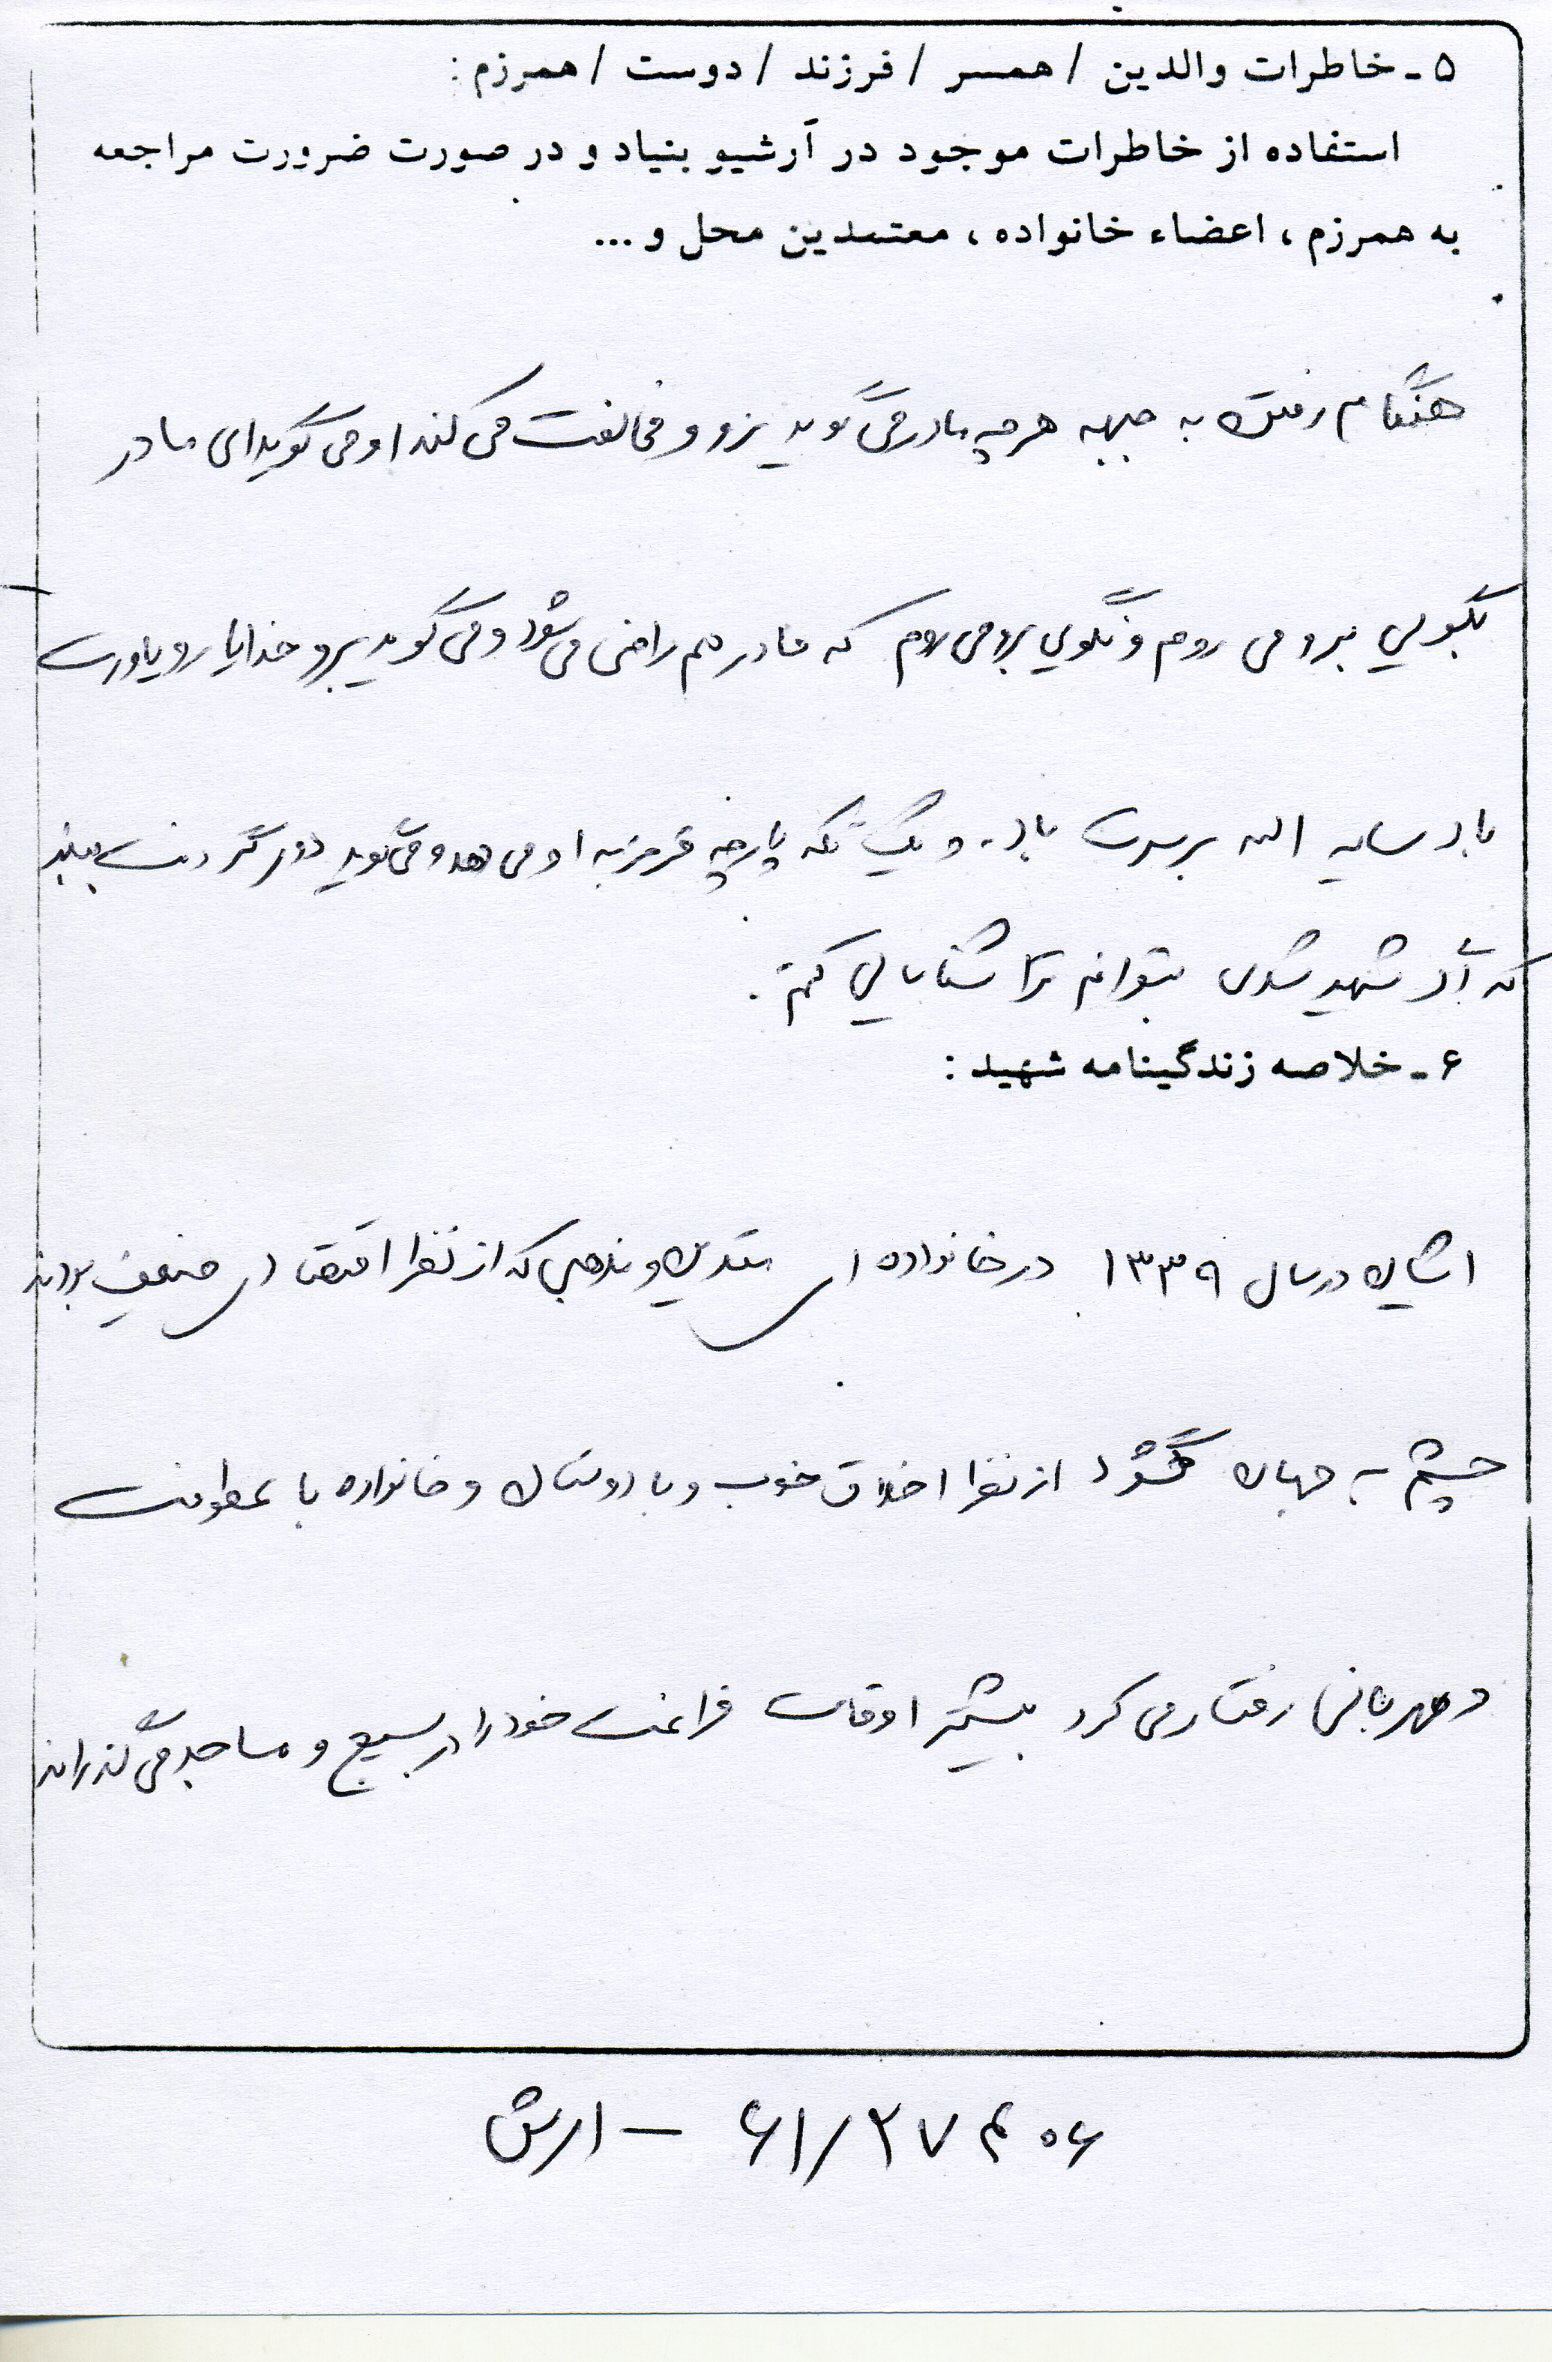 ۵ ـ خاطرات والدین / همسر / فرزند / دوست / همرزم :
استفاده از خاطرات موجود در آرشیو بنیاد و در صورت ضرورت مراجعه
به همرزم ، اعضاء خانواده ، معتمدین محل و ...
هنگام رفتن به جبهه هر چه مادر می گوید نرو و مخالفت می کند او می گوید ای مادر
بگویی برو می روم و نگویی برو می روم که مادر هم راضی می شود و می گوید برو خدایا رو یاورت
باد سایه الله برسرت باد. و یک تکه پارچه قرمز به او می دهد و می گوید دور گردنت ببند
که اگر شهید شدی بتوانم ترا شناسایی کنم.
۶ ـ خلاصه زندگینامه شهید :
ایشان در سال ۱۳۳۹ در خانواده ای متدین و مذهبی که از نظر اقتصادی ضعیف بودند
چشم به جهان گشود از نظر اخلاق خوب و با دوستان و خانواده با عطوفت
و مهربانی رفتار می کرد بیشتر اوقات فراغت خود را در بسیج و مساجد می گذراند
۶۱/۲۷ – ارش